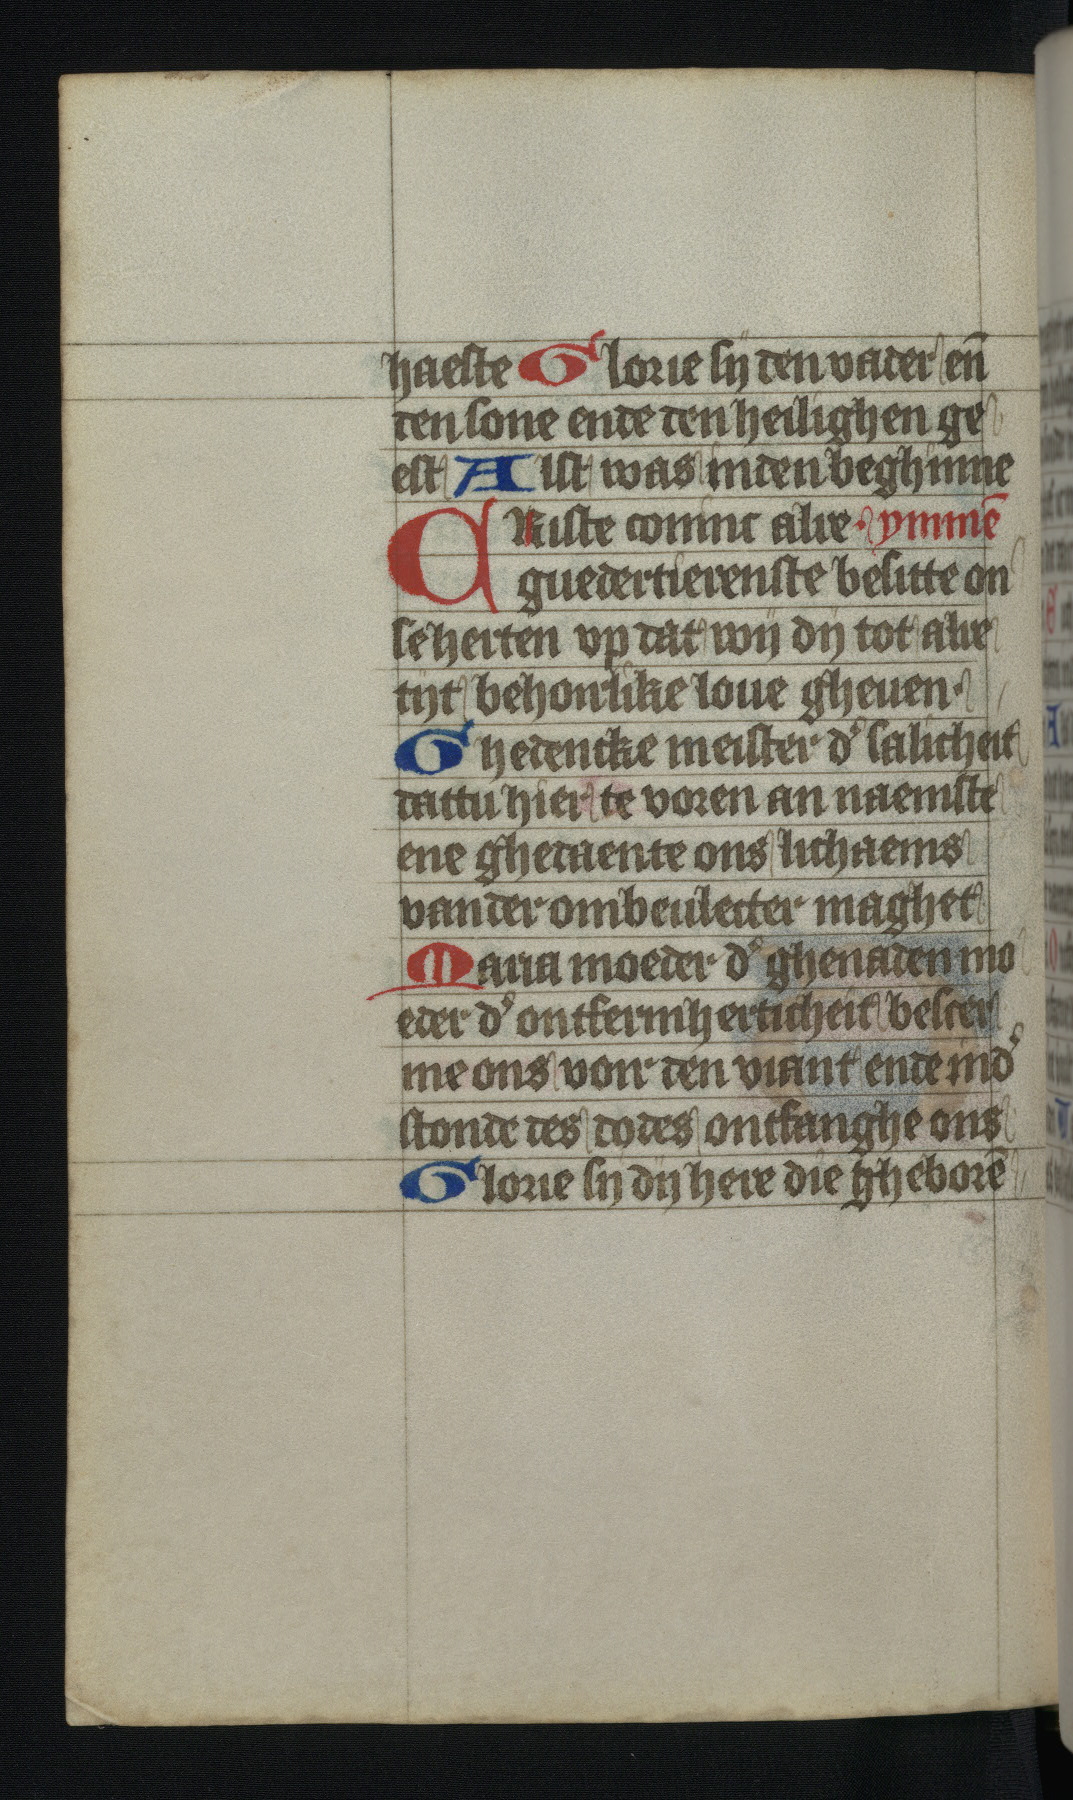 haeste Glorie sij den vader en̄
den sone ende den heilighen ge
est Alst was inden beghinne
CRiste coninc alre · ymmē
guedertierenste besitte on
se herten vp dat wij dij tot alre
tijt behoirlike loue gheuen·
Ghedencke meister d' salicheit
dattu hier te voren an naemste
ene ghedaente ons lichaems
vander ombeulecter maghet
Maria moeder d' ghenaden mo
eder d' ontfermherticheit bescer
me ons voir den viant ende ind'
stonde des dodes ontfanghe ons
Glorie sij dij here die gheborē